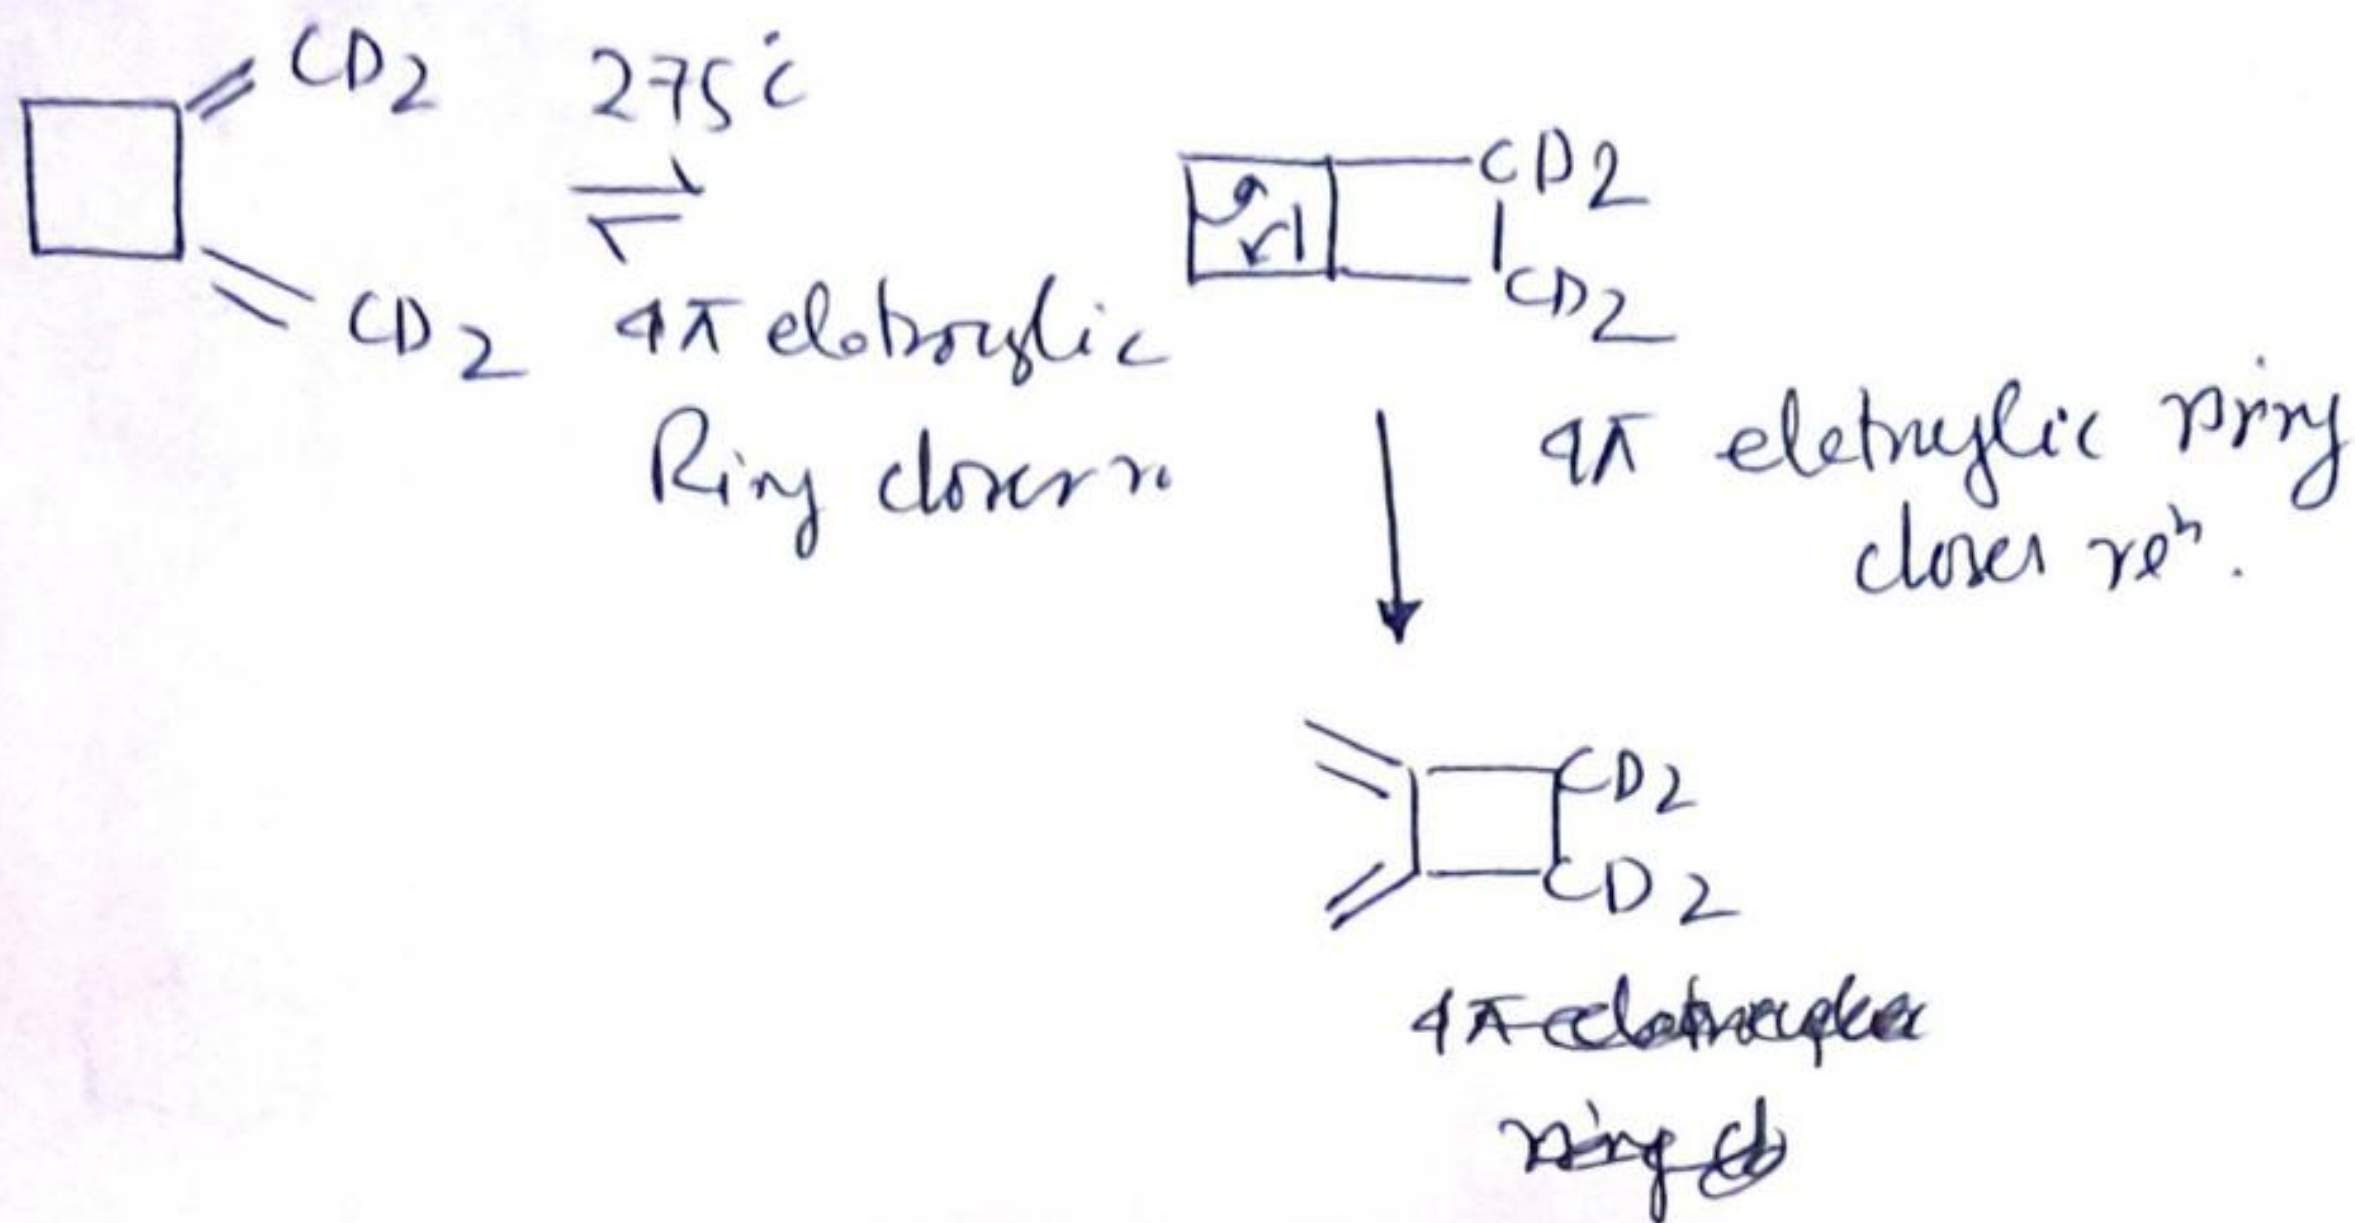 CD2
275°C
CD2
4π eletrocyclic
Ring closer rn
CD2
CD2
4π eletrocyclic ring
closer ren.
CD2
CD2
4π
ring